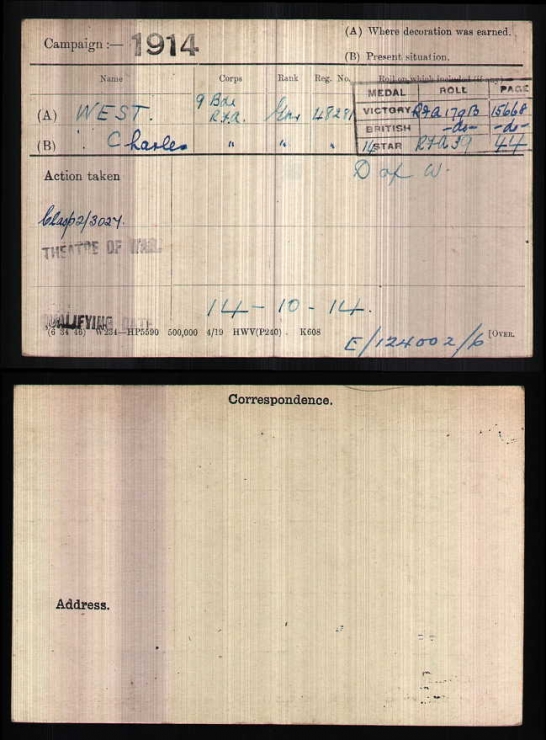 Campaign :— 1914
(A) Where decoration was earned.
(B) Present situation.
Name Corps Rank Reg. No. Roll on which included (if any)
MEDAL ROLL PAGE
(A) WEST. 9 Bde R.F.A. Gnr 48281
VICTORY RFA 179B 15668
BRITISH -do- -do-
(B) " Charles " " "
14 STAR RFA 39 44
Action taken
D of W.
Clasp 2/3027.
THEATRE OF WAR.
14-10-14.
QUALIFYING DATE
(6 34 46) W234—HP5590 500,000 4/19 HWV(P240) K608
E/124002/6 [OVER.
Correspondence.
Address.